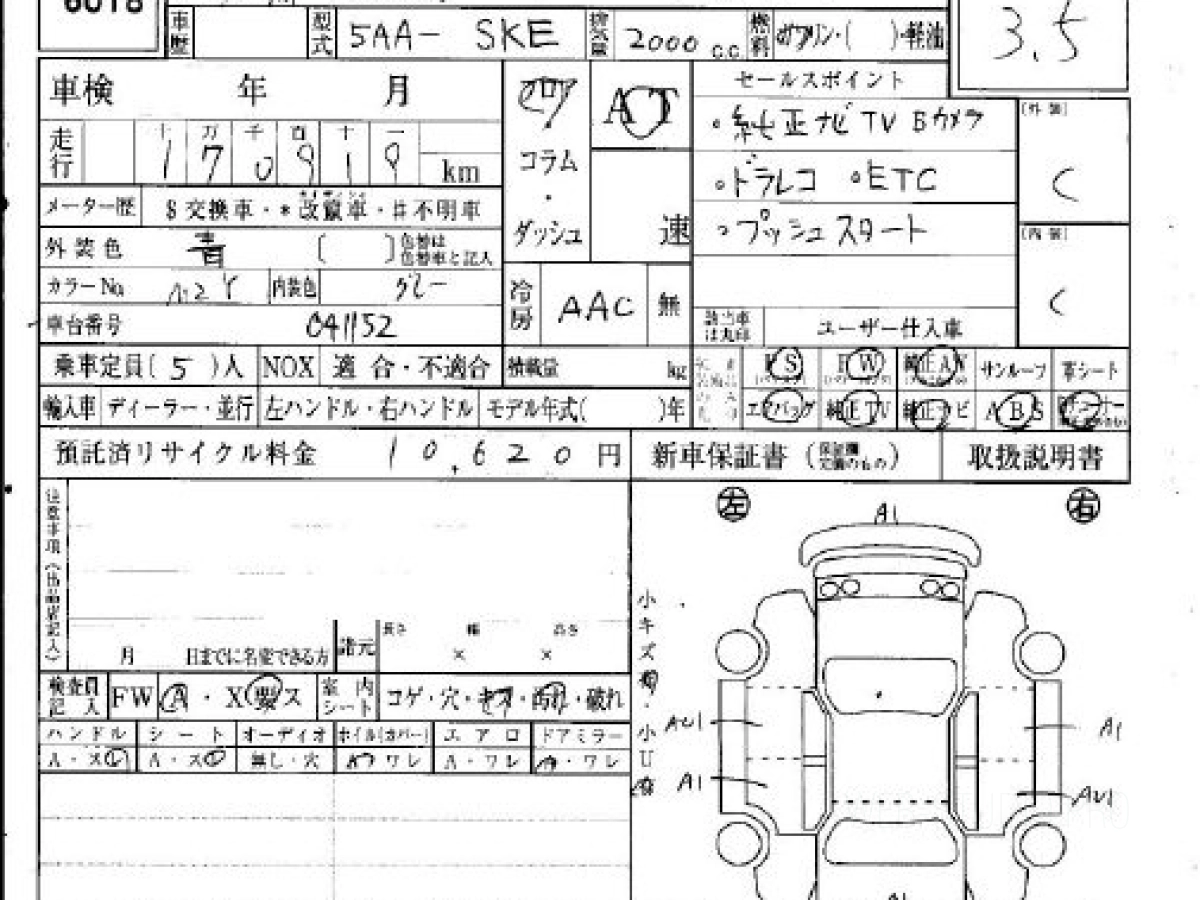 6018
車歴 型式 5AA- SKE 排気量 2000 C.C. 燃料 ガソリン・( )・軽油
3.5
車検 年 月 フロア AT セールスポイント
走行 十 万 千 百 十 一
1 7 0 9 1 9 km
・純正ナビ TV Bカメラ
(外装) C
コラム・ダッシュ 速
・ドラレコ ・ETC
・プッシュスタート
メーター歴 $交換車・*改竄車・#不明車
(内装) C
外装色 青 ( ) 色替は色替車と記入
カラーNo. 内装色 グレー
冷房 AAC 無
車台番号 041152
該当車は丸印 ユーザー仕入車
乗車定員(5)人 NOX 適合・不適合 積載量 kg
PS PW 純正AW サンルーフ 革シート
輸入車 ディーラー・並行 左ハンドル・右ハンドル モデル年式( )年
エアバッグ 純正TV 純正ナビ ABS
預託済リサイクル料金 10,620 円 新車保証書 (保証書交換のもの) 取扱説明書
注意事項(出品店記入)
左 右
A1
月 日までに名変できる方 諸元 長さ 幅 × 高さ ×
小キズ有・小U有
検査員記入 FW A・X 製ス 室内シート コゲ・穴・キズ・汚れ・破れ
ハンドル シート オーディオ ホイル(カバー) エアロ ドアミラー
A・スレ A・スレ 無し・穴 キズ ワレ A・ワレ A・ワレ
AU1 A1
A1 AU1
A1